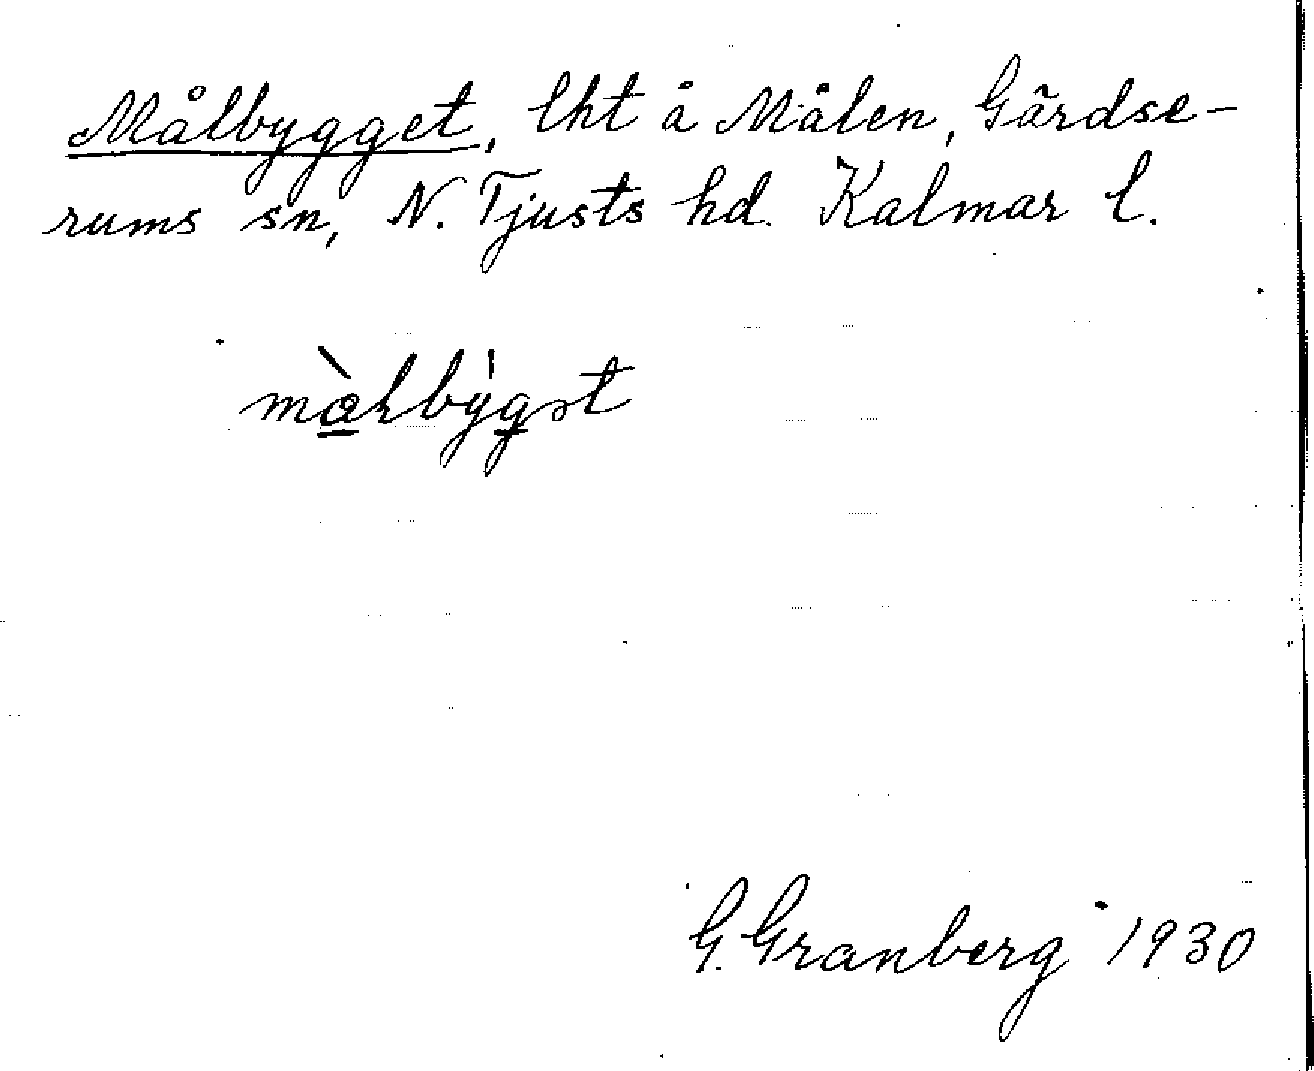 Målbygget, lht å Målen, Gärdse-
rums sn, N. Tjusts hd. Kalmar l.
G. Granberg 1930